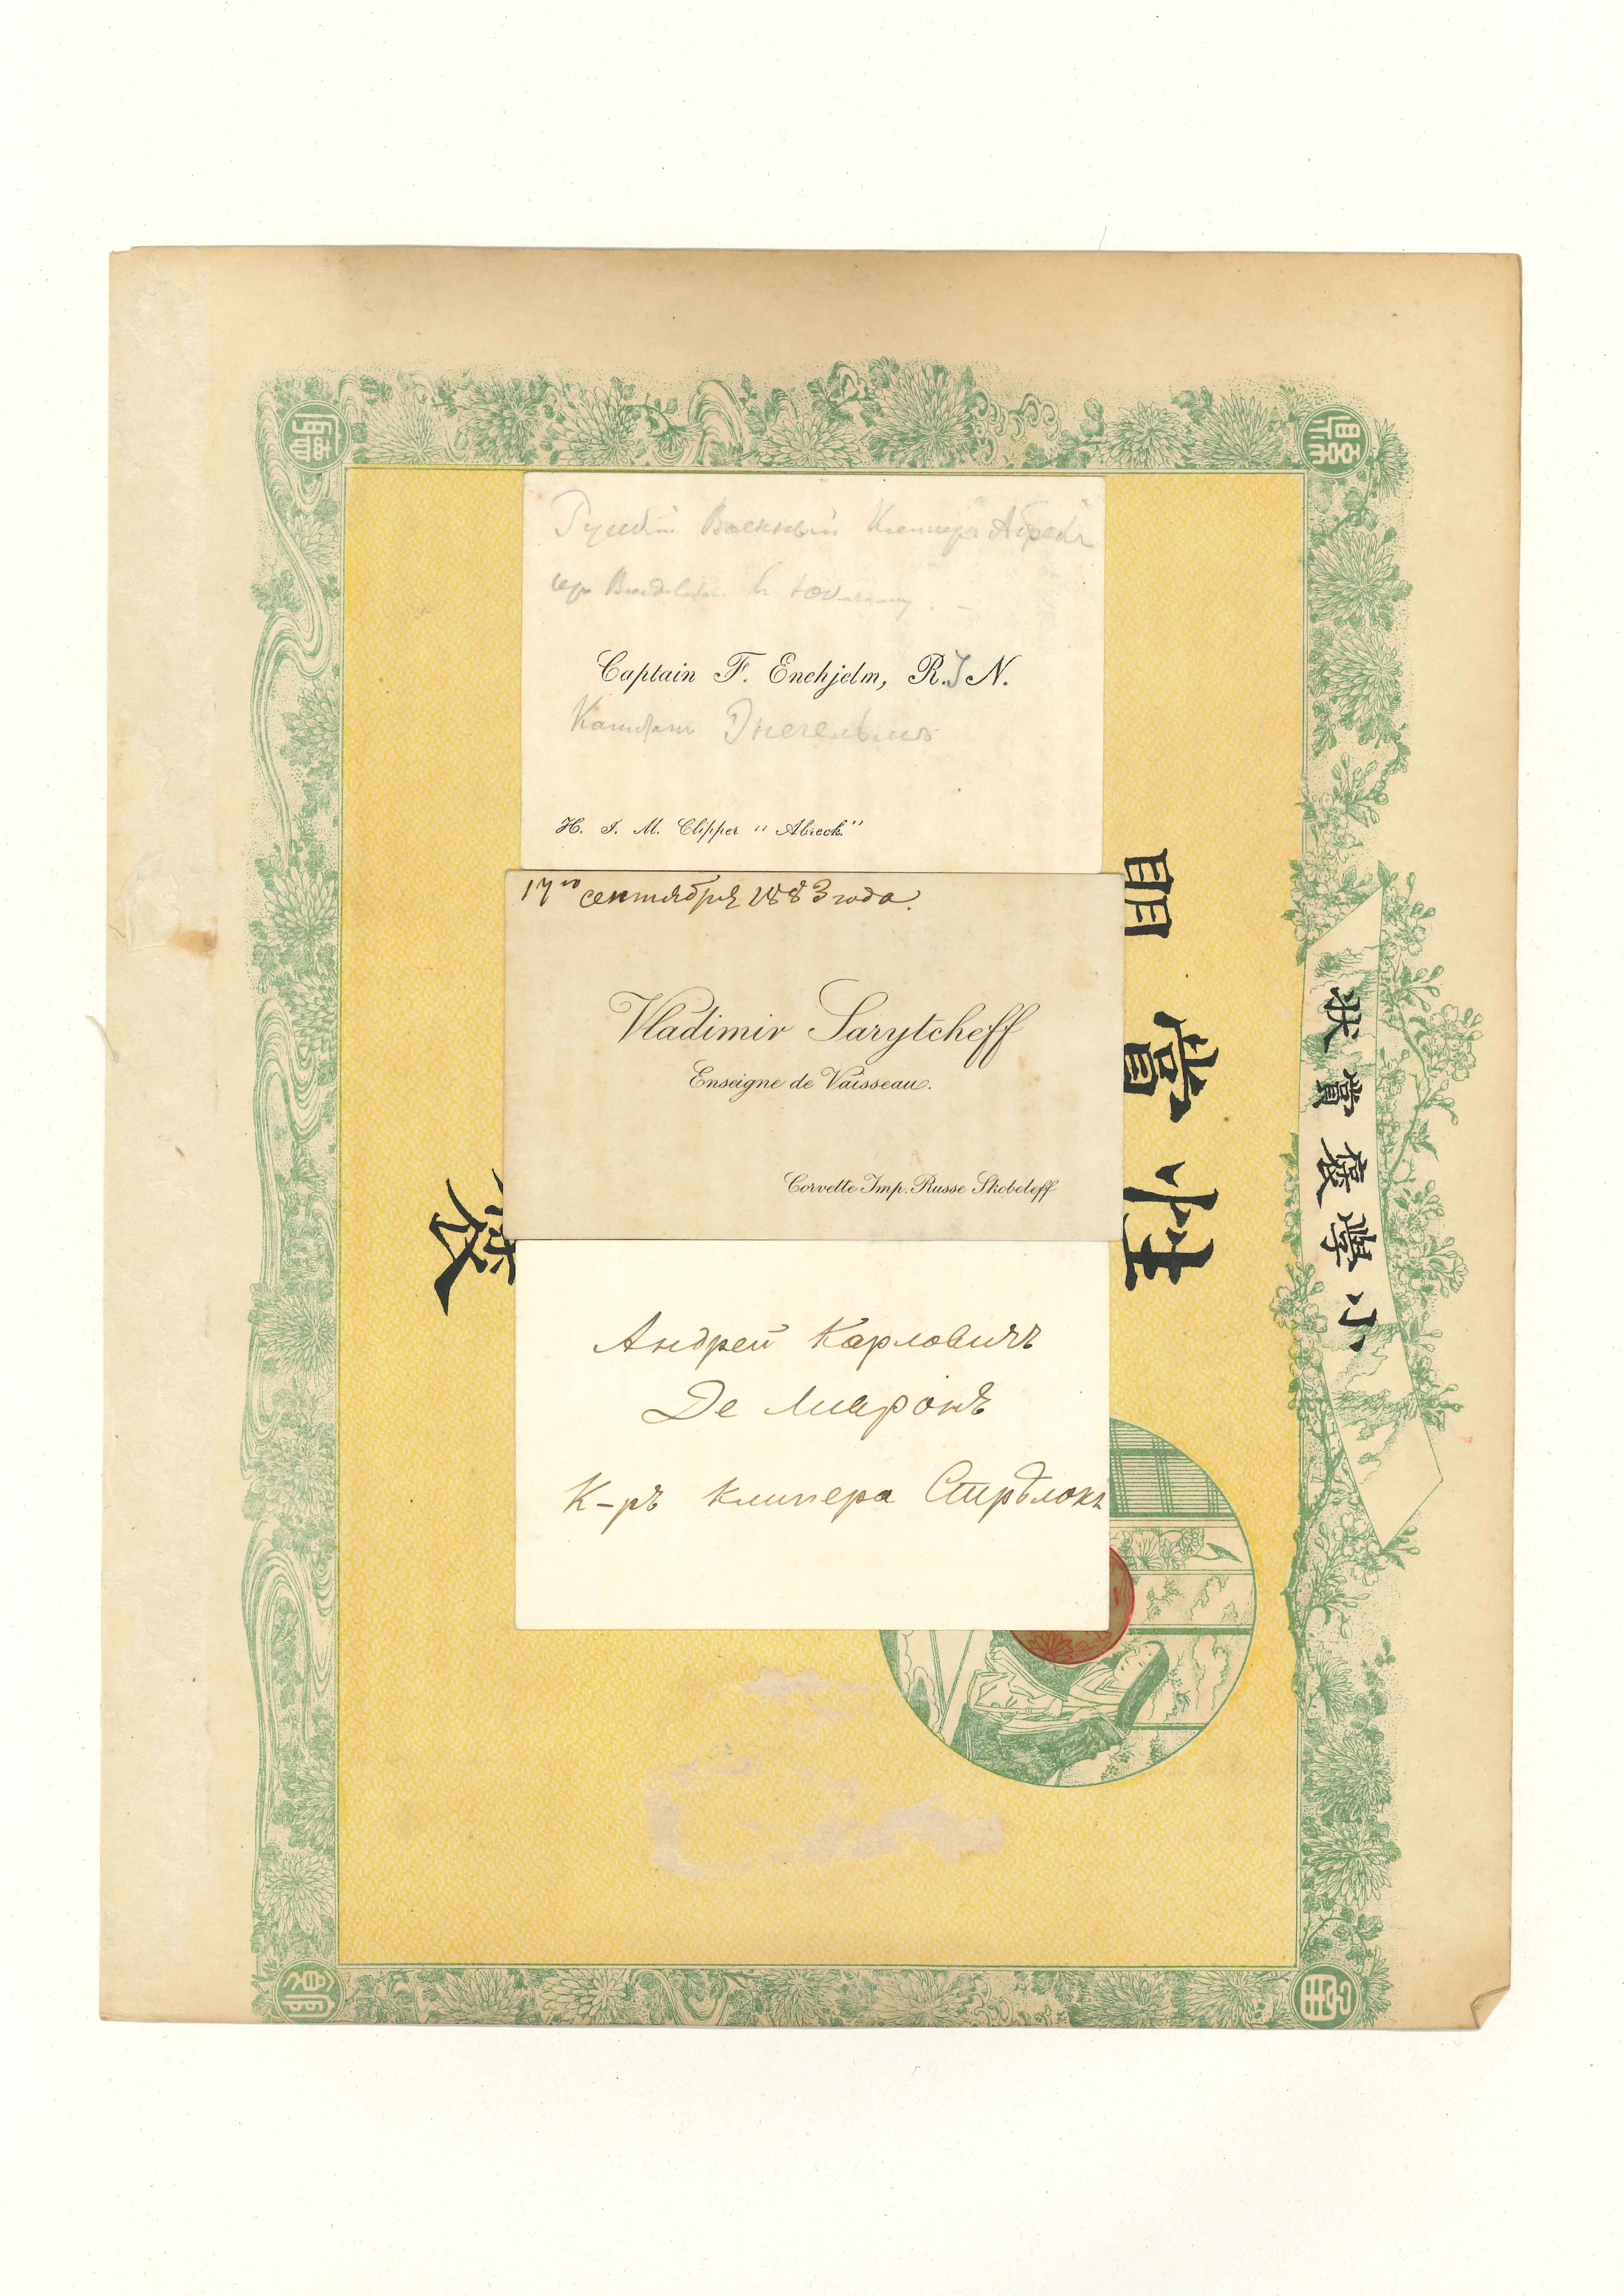 Русскій Военный Клиперъ "Абрекъ"
Captain F. Enehjelm, R. I N.
Капитанъ Энегельмъ
H. I. M. Clipper "Abreck"
17го сентября 1883 года.
Vladimir Sarytcheff
Enseigne de Vaisseau.
Corvette Imp. Russe Skobeleff
Андрей Карловичъ
Де Ливронъ
К-ръ клипера Стрѣлокъ
小學校賞状
賞
性